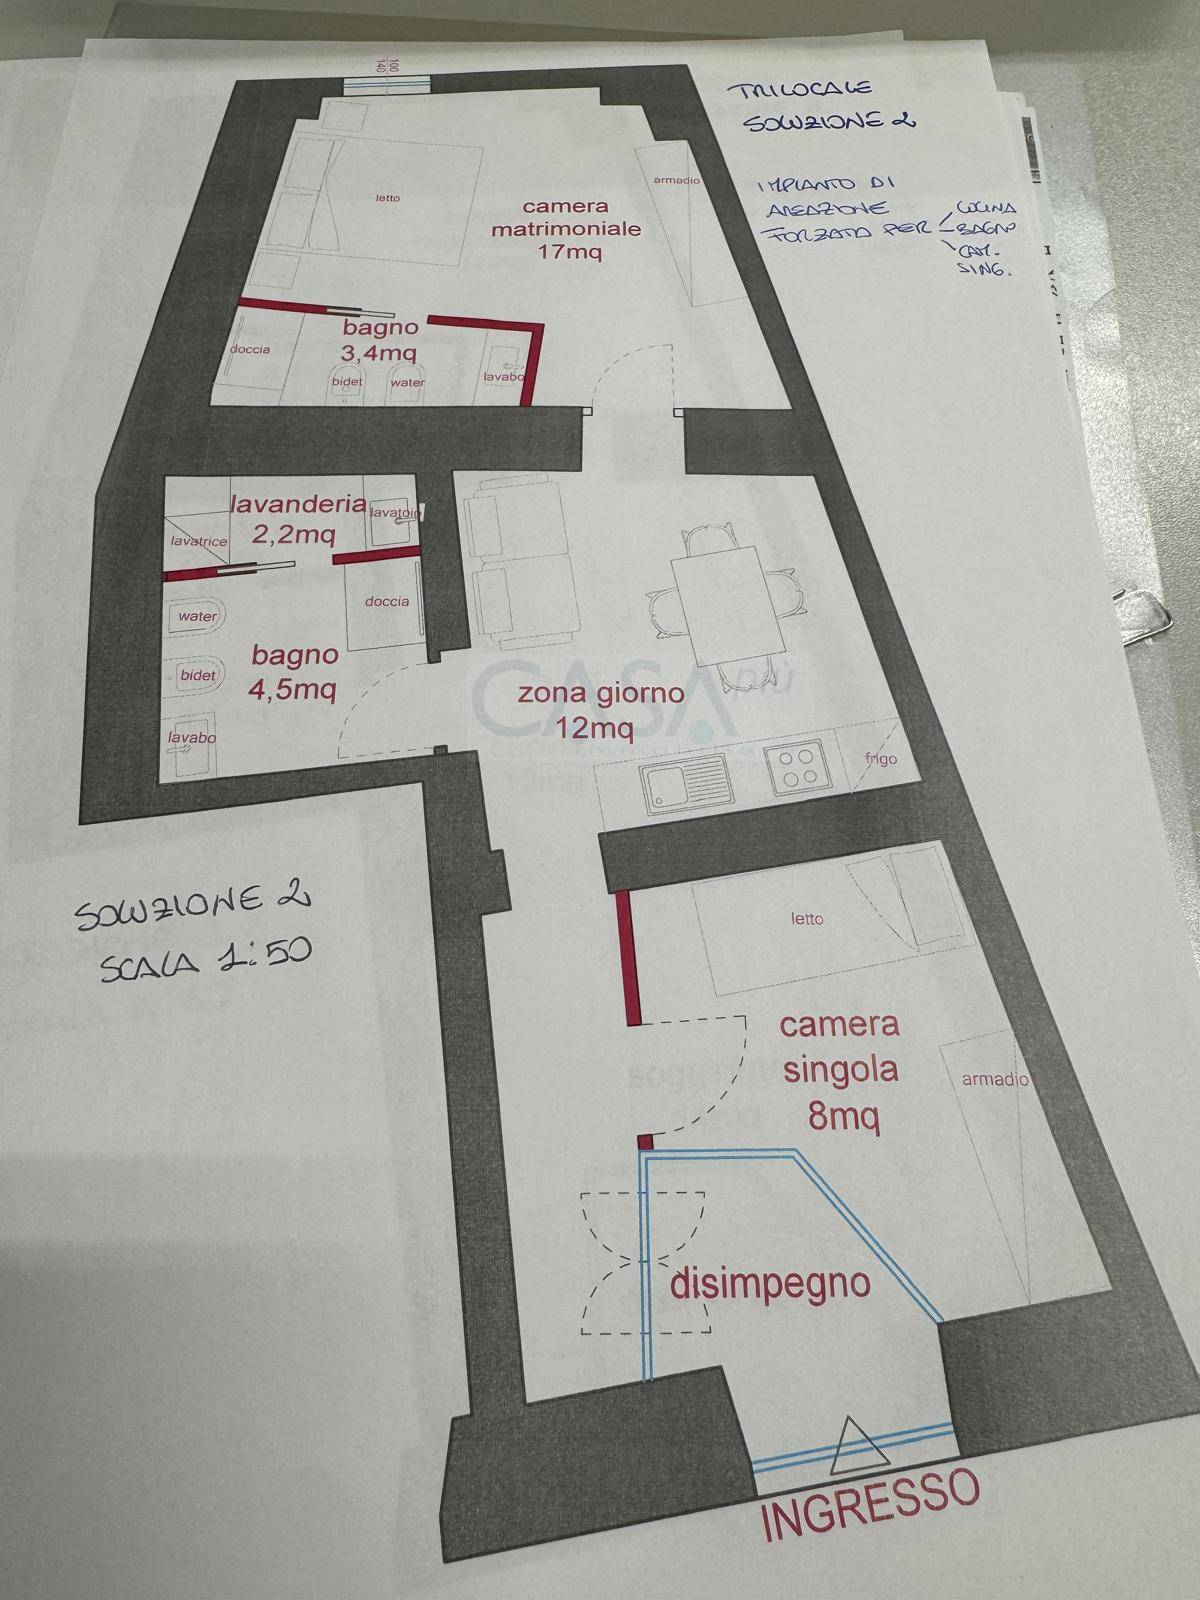 140
100
TRILOCALE
SOLUZIONE 2
IMPIANTO DI
AREAZIONE
FORZATA PER
CUCINA
BAGNO
CAM.
SING.
letto
armadio
camera
matrimoniale
17mq
bagno
3,4mq
doccia
bidet
water
lavabo
lavanderia
2,2mq
lavatoio
lavatrice
doccia
water
bagno
4,5mq
bidet
lavabo
CASA più
zona giorno
12mq
frigo
SOLUZIONE 2
SCALA 1:50
letto
camera
singola
8mq
armadio
disimpegno
INGRESSO